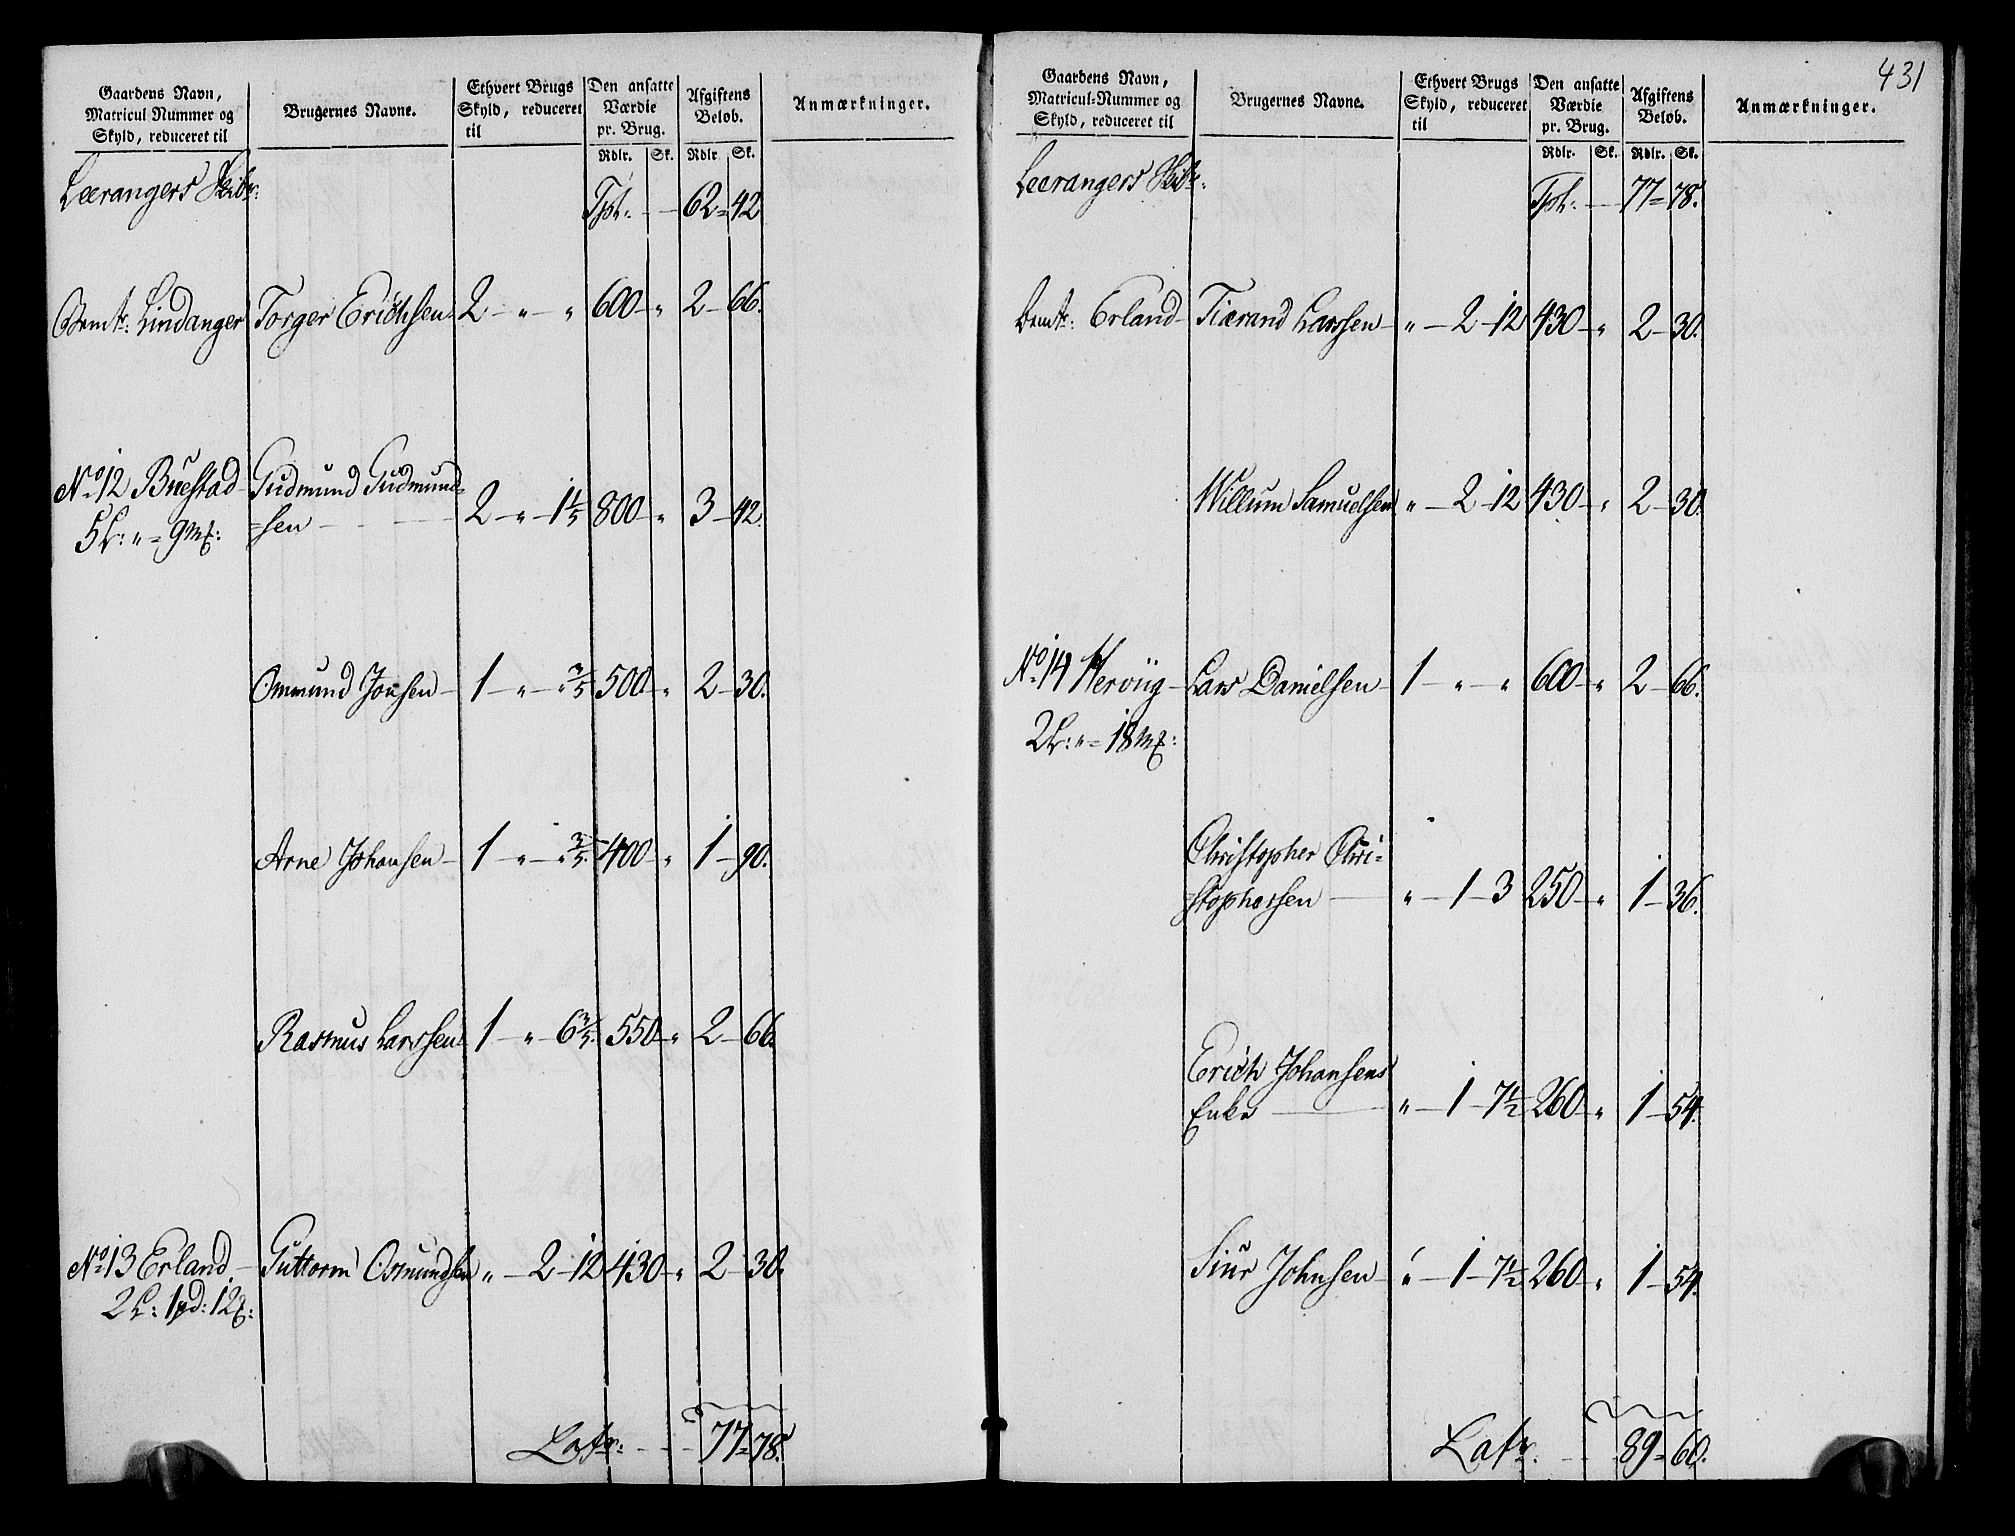 Gaardens Navn, Matricul Nummer og Skyld, reduceret til | Brugernes Navne. | Ethvert Brugs Skyld, reduceret til | Den ansatte Værdie pr. Brug. Rdlr. Sk. | Afgiftens Beløb. Rdlr Sk. | Anmærkninger.
Leerangers Skibr: Tpt: — 62 = 42
Bemte: Lindanger Torger Erichsen 2 — " — " 600 " 2 — 66.
No 12 Buestad Gudmund Gudmund=
5 L: " = 9 mk: =sen — 2 — " — 1 1/5 800 " 3 — 42.
Ommund Jonsen — 1 — " — " 3/5 500 " 2 — 30.
Arne Johansen — 1 — " — " 3/5 400 " 1 — 90.
Rasmus Larssen 1 — " — 6 3/5 550 " 2 — 66.
No 13 Erland — Guttorm Osmundsen " — 2 — 12 430 " 2 — 30.
2 L: 1 pd: 12
Latr: — 77 = 78.
431
Gaardens Navn, Matricul-Nummer og Skyld, reduceret til | Brugernes Navne. | Ethvert Brugs Skyld, reduceret til | Den ansatte Værdie pr. Brug. Rdlr. Sk. | Afgiftens Beløb. Rdlr. Sk. | Anmærkninger.
Leerangers Skibr: Tpt: — 77 = 78.
Bemte: Erland — Tiærand Larssen — " — 2 — 12 430 " 2 — 30.
Willum Samuelsen " — 2 — 12 430 " 2 — 30.
No 14 Herviig — Lars Danielsen — 1 — " — " 600 " 2 — 66.
2 L: " = 18 mk:
Christopher Chri=
=stophersen — " — 1 — 3 250 " 1 — 36.
Erich Johansens
Enke — " — 1 — 7 1/2 260 " 1 — 54.
Siur Johnsen — " — 1 — 7 1/2 260 " 1 — 54.
Latr. — 89 = 60.